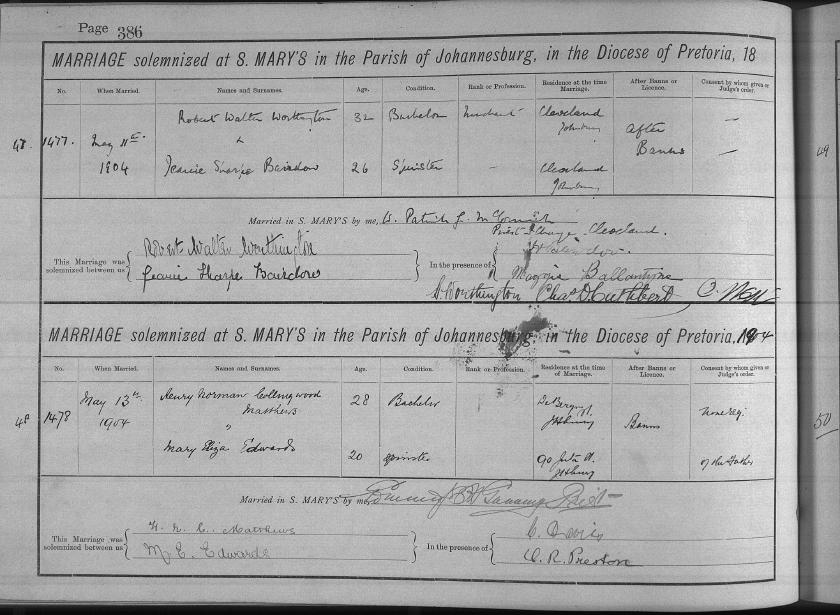 Page 386
MARRIAGE solemnized at S. MARY'S in the Parish of Johannesburg, in the Diocese of Pretoria, 18
No. When Married. Names and Surnames. Age. Condition. Rank or Profession. Residence at the time Marriage. After Banns or Licence. Consent by whom given or Judge's order.
47 1477. May 11th 1904 Robert Walter Worthington 32 Bachelor Merchant Cleveland After Banns —
&
Jeanie Sharpe Bairdow 26 Spinster – Cleveland —
49
Married in S. MARY'S by me, Patrick
Priest in Charge Cleveland.
This Marriage was solemnized between us Robert Walter Worthington
Jeanie Sharpe Bairdow
In the presence of
Maggie Ballantyne
Worthington Chas D Cuthbert
MARRIAGE solemnized at S. MARY'S in the Parish of Johannesburg, in the Diocese of Pretoria, 1904
No. When Married. Names and Surnames. Age. Condition. Rank or Profession. Residence at the time of Marriage. After Banns or Licence. Consent by whom given or Judge's order.
48 1478 May 13th 1904 Henry Norman Collingwood Matthews 28 Bachelor Jhburg Banns None req.
"
Mary Eliza Edwards 20 Spinster 90 Jhburg of the Father
50
Married in S. MARY'S by me, Priest
This Marriage was solemnized between us H. N. C. Matthews
M. E. Edwards
In the presence of C. Davies
C. R. Preston